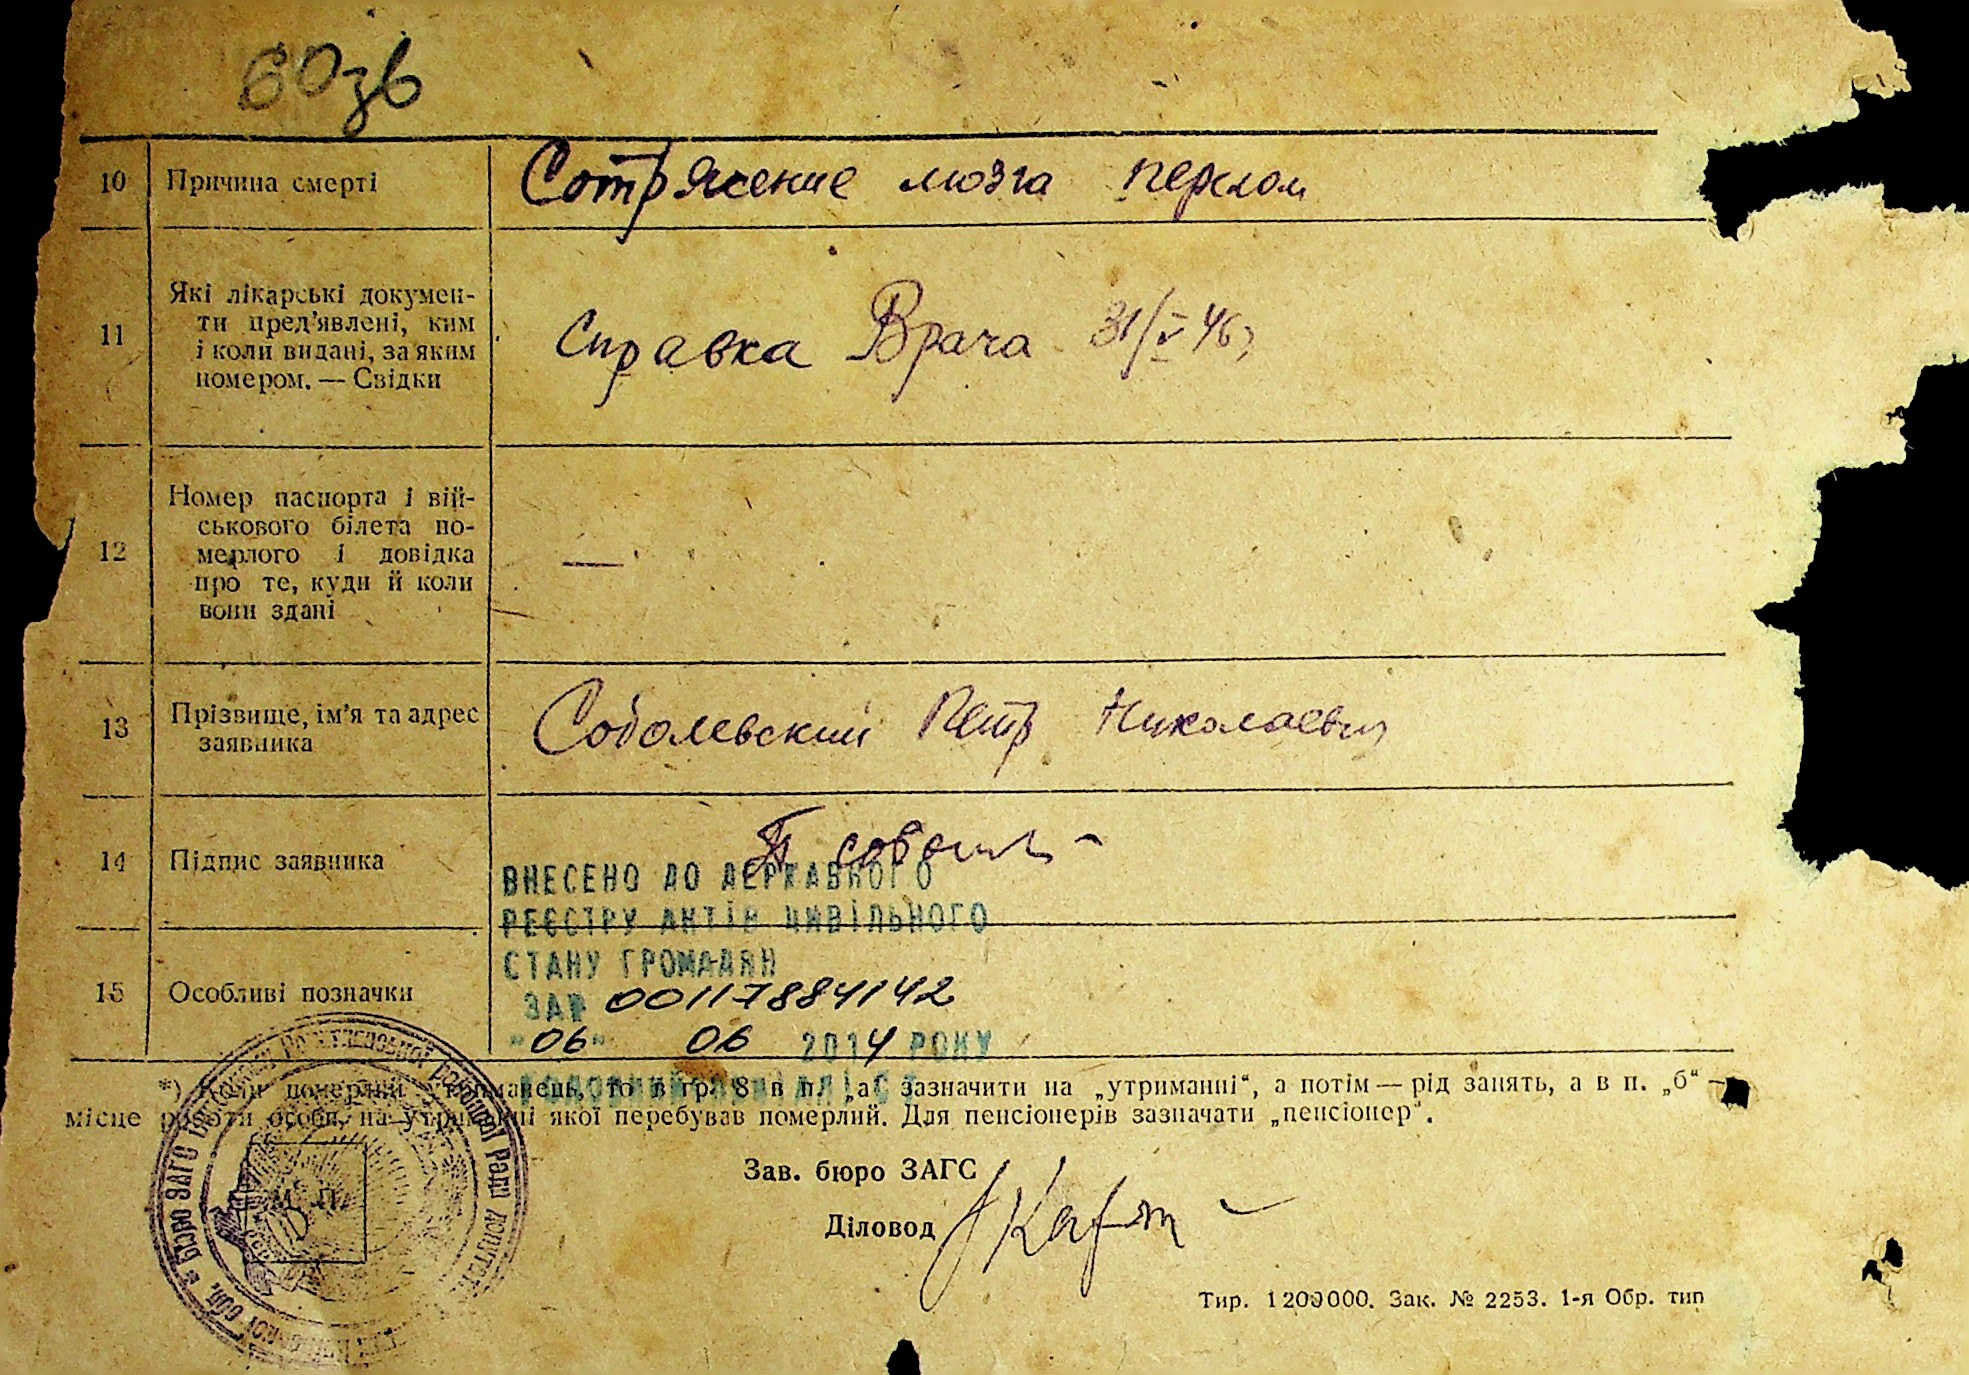 60зв
10 Причина смерті Сотрясение мозга перелом
11 Які лікарські докумен-
ти пред'явлені, ким
і коли видані, за яким
номером. — Свідки
Справка Врача 31/V 46г
12 Номер паспорта і вій-
ськового білета по-
мерлого і довідка
про те, куди й коли
вони здані
—
13 Прізвище, ім'я та адрес
заявника
Соболевский Петр Николаевич
14 Підпис заявника
ВНЕСЕНО ДО ДЕРЖАВНОГО
РЕЄСТРУ АКТІВ ЦИВІЛЬНОГО
СТАНУ ГРОМАДЯН
15 Особливі позначки
ЗА№ 00117884142
"06" 06 2014 РОКУ
ГОЛОВНИЙ СПЕЦІАЛІСТ
*) Коли померлий утриманець, то в гр. 8 в п. „а“ зазначити на „утриманні“, а потім — рід занять, а в п. „б“ —
місце роботи особи, на утриманні якої перебував померлий. Для пенсіонерів зазначати „пенсіонер“.
Зав. бюро ЗАГС
М. П.
Діловод
Тир. 1200000. Зак. № 2253. 1-я Обр. тип